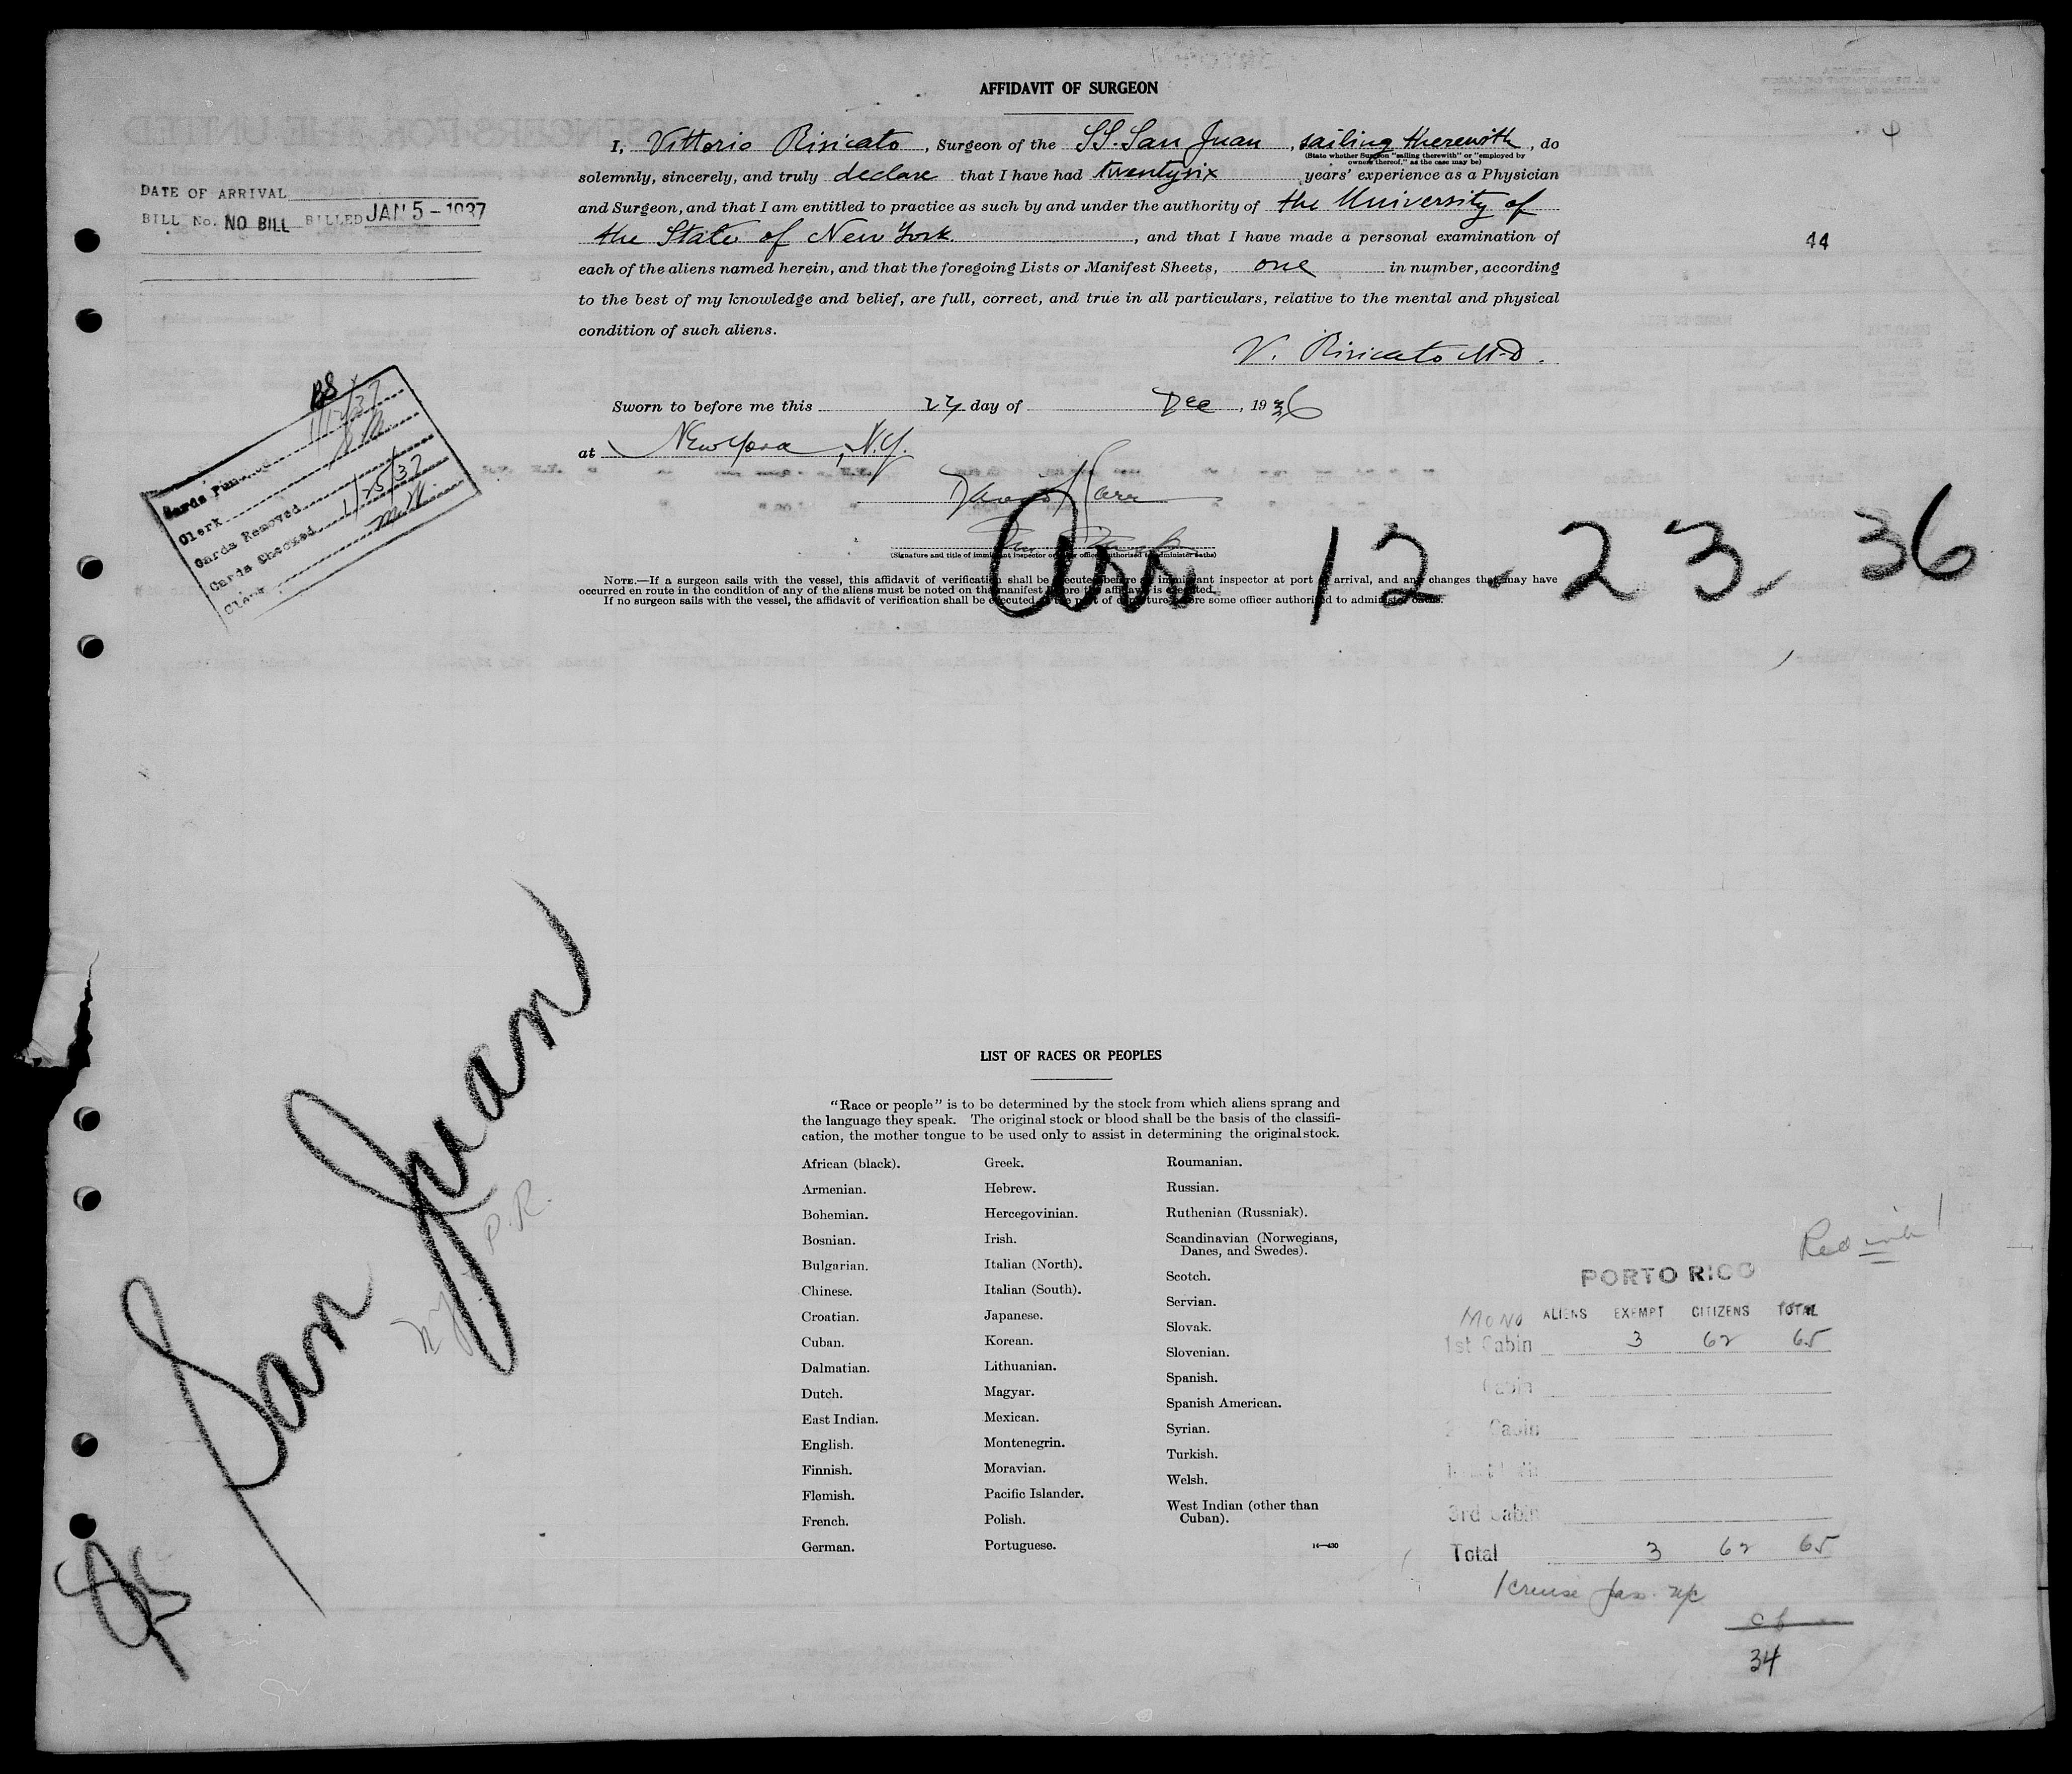 AFFIDAVIT OF SURGEON
I, Vittorio Risicato, Surgeon of the SS. San Juan, sailing therewith, do
(State whether Surgeon "sailing therewith" or "employed by
owners thereof," as the case may be)
solemnly, sincerely, and truly declare that I have had twentysix years' experience as a Physician
and Surgeon, and that I am entitled to practice as such by and under the authority of the University of
the State of New York, and that I have made a personal examination of
each of the aliens named herein, and that the foregoing Lists or Manifest Sheets, one in number, according
to the best of my knowledge and belief, are full, correct, and true in all particulars, relative to the mental and physical
condition of such aliens.
V. Risicato M.D.
Sworn to before me this day of Dec, 1936
at New York, N.Y.
(Signature and title of immigrant inspector or other officer authorized to administer oaths)
NOTE.—If a surgeon sails with the vessel, this affidavit of verification shall be executed before an immigrant inspector at port of arrival, and any changes that may have
occurred en route in the condition of any of the aliens must be noted on the manifest before the affidavit is executed.
If no surgeon sails with the vessel, the affidavit of verification shall be executed at the port of departure before some officer authorized to administer oaths.
DATE OF ARRIVAL
BILL No. NO BILL BILLED JAN 5-1937
44
BS
Cards Punched 1/12/37
Clerk
Cards Removed
Cards Checked 1/25/37
Clerk
Arr 12-23-36
San Juan
N.Y.
P.R.
LIST OF RACES OR PEOPLES
"Race or people" is to be determined by the stock from which aliens sprang and
the language they speak. The original stock or blood shall be the basis of the classifi-
cation, the mother tongue to be used only to assist in determining the original stock.
African (black).
Armenian.
Bohemian.
Bosnian.
Bulgarian.
Chinese.
Croatian.
Cuban.
Dalmatian.
Dutch.
East Indian.
English.
Finnish.
Flemish.
French.
German.
Greek.
Hebrew.
Hercegovinian.
Irish.
Italian (North).
Italian (South).
Japanese.
Korean.
Lithuanian.
Magyar.
Mexican.
Montenegrin.
Moravian.
Pacific Islander.
Polish.
Portuguese.
Roumanian.
Russian.
Ruthenian (Russniak).
Scandinavian (Norwegians,
Danes, and Swedes).
Scotch.
Servian.
Slovak.
Slovenian.
Spanish.
Spanish American.
Syrian.
Turkish.
Welsh.
West Indian (other than
Cuban).
14—430
Red ink
PORTO RICO
MONO ALIENS EXEMPT CITIZENS TOTAL
1st Cabin 3 62 65
Cabin
Cabin
3rd Cabin
Total 3 62 65
1 cruise pas.
34